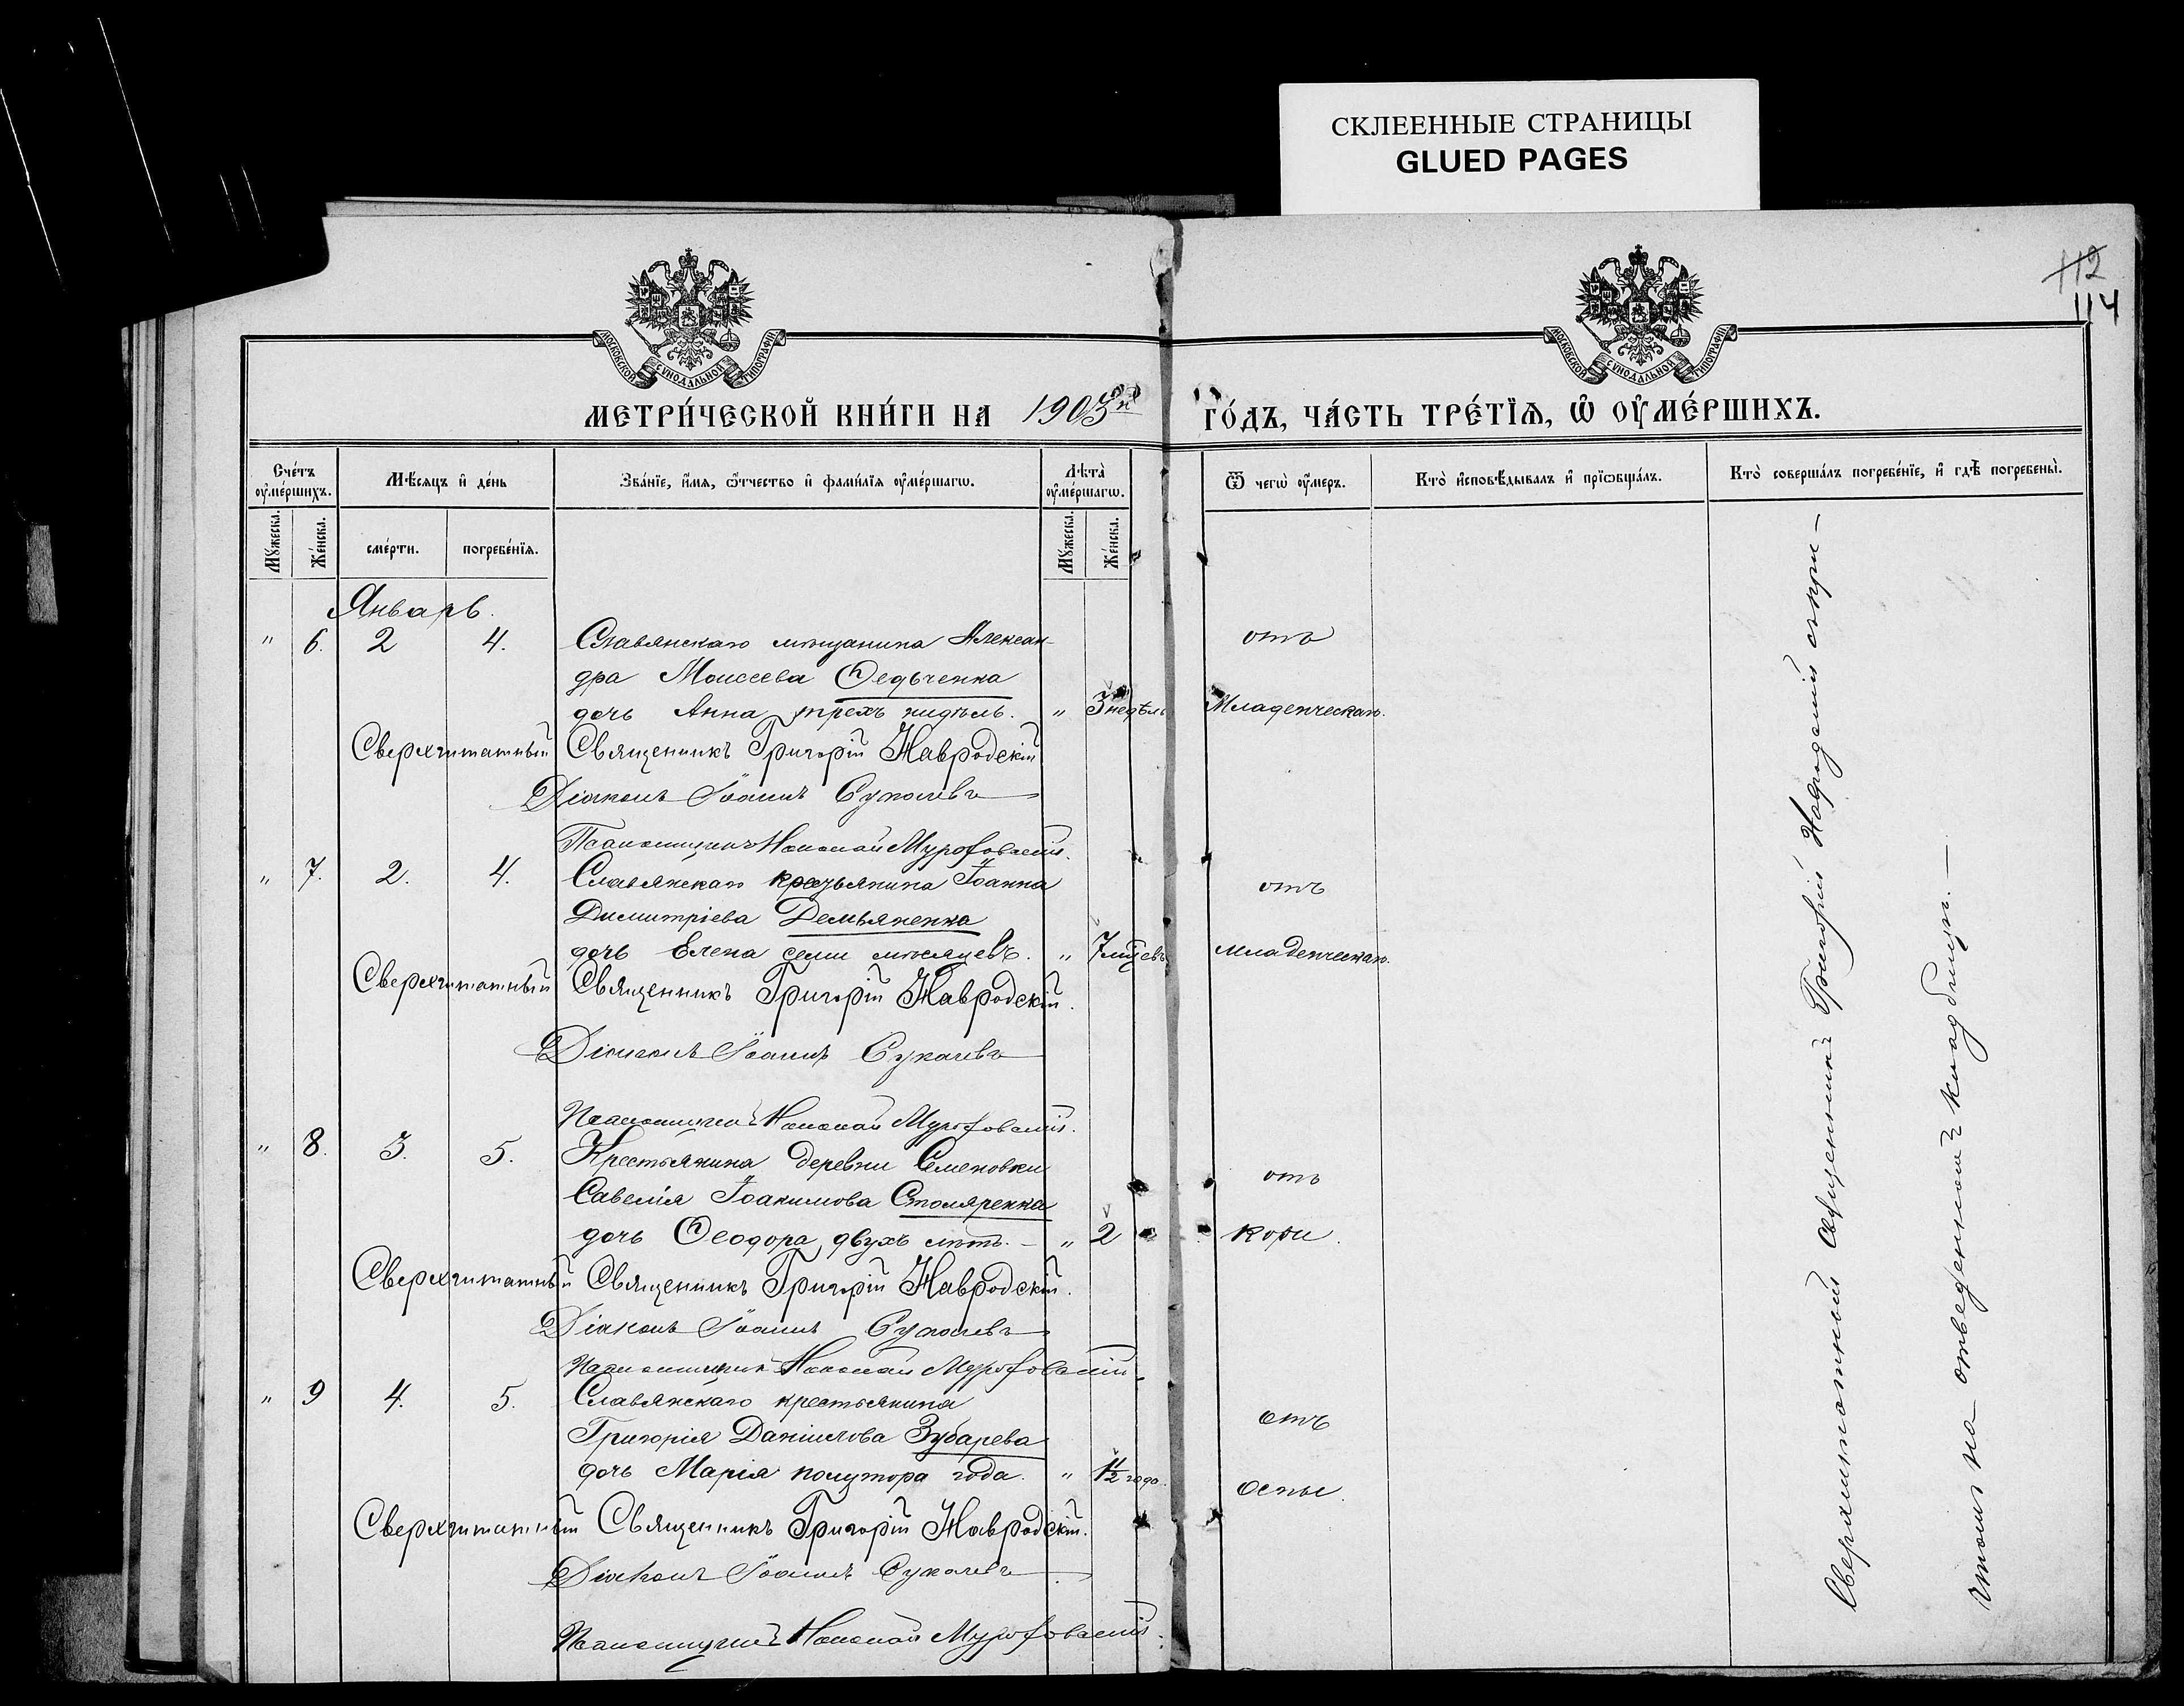 СКЛЕЕННЫЕ СТРАНИЦЫ
GLUED PAGES
112
114
МОСКОВСКОЙ СѴНОДАЛЬНОЙ ТИПОГРАФІИ
МОСКОВСКОЙ СѴНОДАЛЬНОЙ ТИПОГРАФІИ
МЕТРИ́ЧЕСКОЙ КНИ́ГИ НА 1903й ГО́ДЪ, ЧА́СТЬ ТРЕ́ТЇѦ, Ѡ҆ ОУ҆МЕ́РШИХЪ.
Сче́тъ оу҆ме́ршихъ.
Мꙋ́жеска.
Же́нска.
Мѣ́сѧцъ и҆ де́нь
сме́рти.
погребе́нїѧ.
Зва́нїе, и҆́мѧ, ѻ҆́тчество и҆ фами́лїѧ оу҆ме́ршагѡ.
Лѣ́та̀ оу҆ме́ршагѡ.
Мꙋ́жеска.
Же́нска.
Ѿ чегѡ̀ оу҆́меръ.
Кто̀ и҆сповѣ́дывалъ и҆ прїѡбща́лъ.
Кто̀ соверша́лъ погребе́нїе, и҆ гдѣ̀ погребены̀.
Январь.
" 6. 2 4. Славянскаго мѣщанина Алексан- отъ
дра Моисеева Ѳедьченка
дочь Анна трехъ нидѣль. " 3 недѣль Младенческаго.
Сверхштатный Священникъ Григорій Навродскій
Діаконъ Іоаннъ Сукачевъ
Псаломщикъ Николай Мурофовскій.
" 7. 2. 4. Славянскаго крестьянина Іоанна отъ
Димитріева Демьяненка
дочь Елена семи мѣсяцевъ. " 7 мцевъ младенческаго.
Сверхштатный Священникъ Григорій Навродскій.
Діаконъ Іоаннъ Сукачевъ
Псаломщикъ Николай Мурофовскій.
" 8. 3. 5. Крестьянина деревни Семеновки отъ
Савелія Іоакимова Столяренка
дочь Ѳеодора, двухъ лѣтъ. — " 2 кори.
Сверхштатный Священникъ Григорій Навродскій.
Діаконъ Іоаннъ Сукачевъ
Псаломщикъ Николай Мурофовскій.
" 9 4. 5. Славянскаго крестьянина отъ
Григорія Даніилова Зубарева
дочь Марія полутора года. " 1½ года. оспы.
Сверхштатный Священникъ Григорій Навродскій.
Діаконъ Іоаннъ Сукачевъ
Псаломщикъ Николай Мурофовскій.
Сверхштатный Священникъ Григорій Навродскій съ при-
чтомъ на отведенномъ кладбищѣ. —